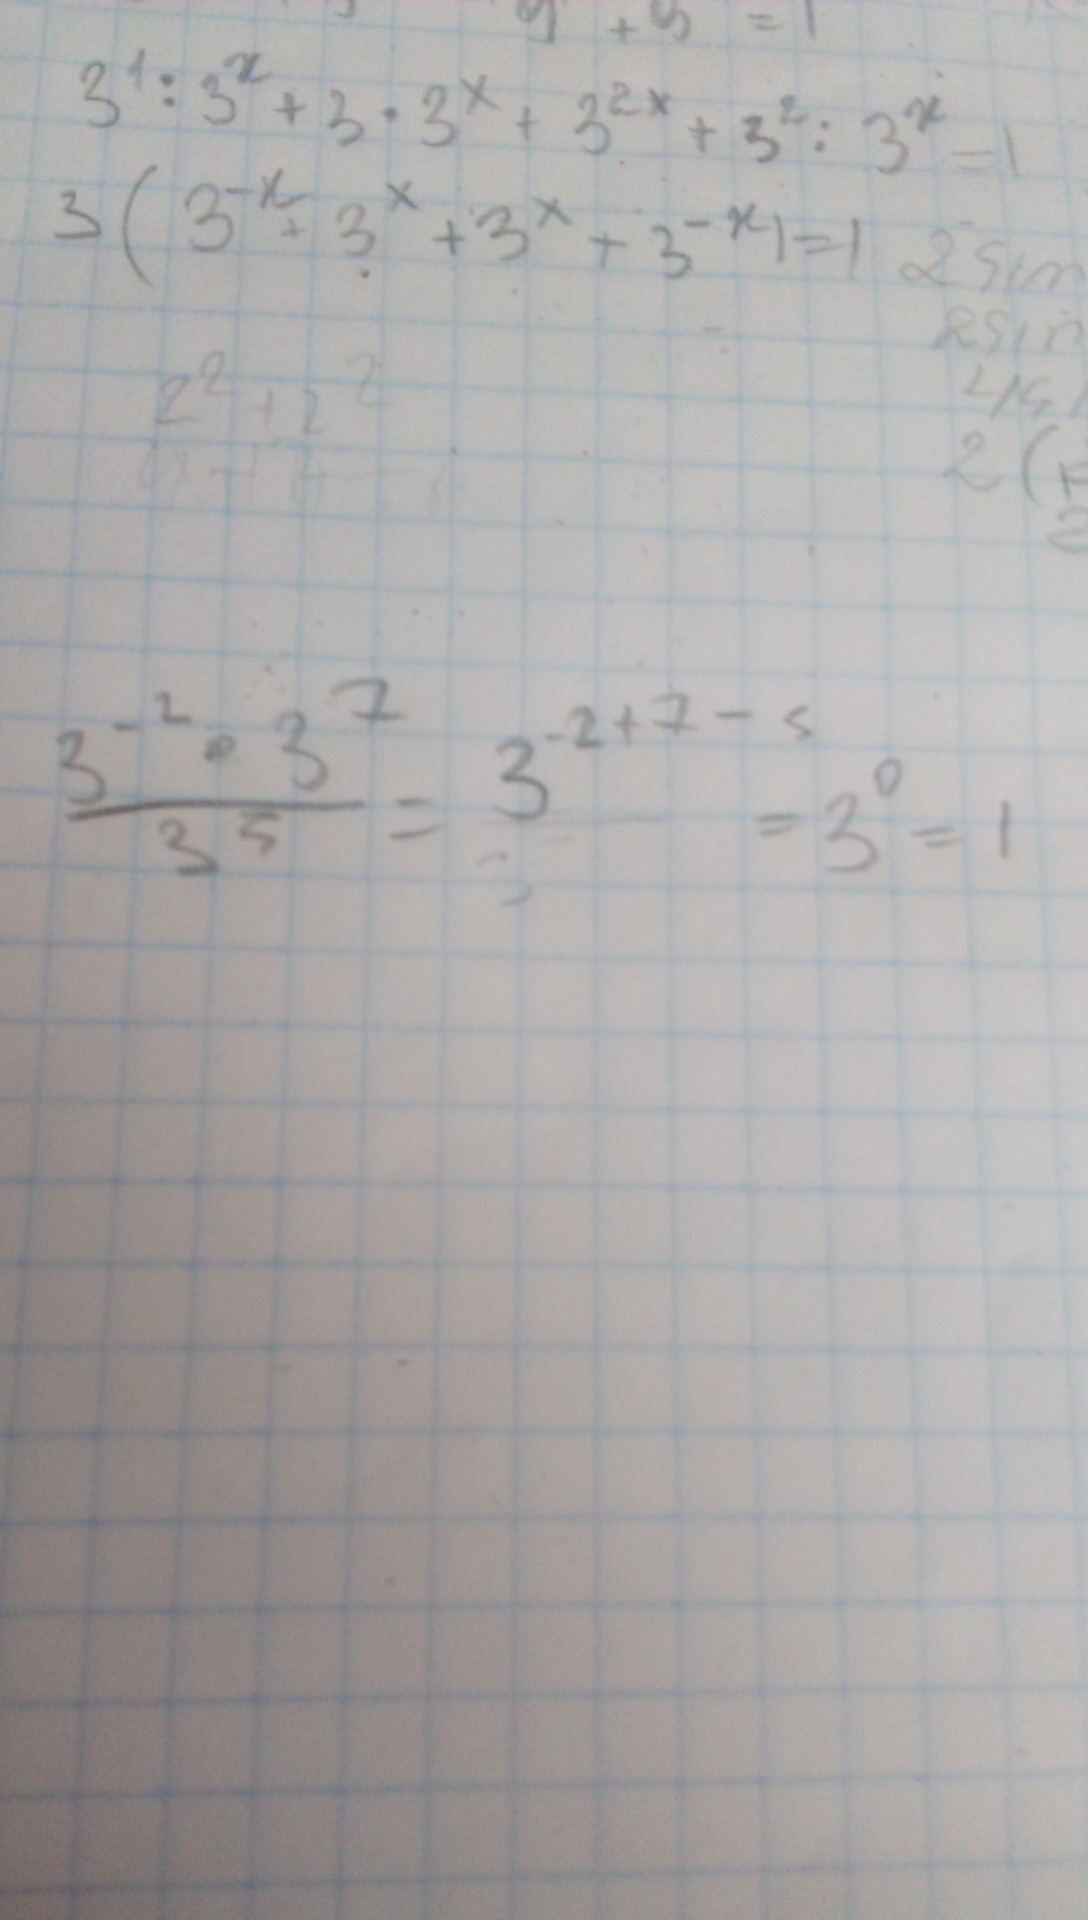 9 + 3 = 1
3¹ : 3ˣ + 3 · 3ˣ + 3²ˣ + 3² : 3ˣ = 1
3 ( 3⁻ˣ + 3ˣ + 3ˣ + 3⁻ˣ ) = 1
2 sin
2sin
2 (
2² + 2²
3⁻² · 3⁷ / 3⁵ = 3⁻²⁺⁷⁻⁵ = 3⁰ = 1